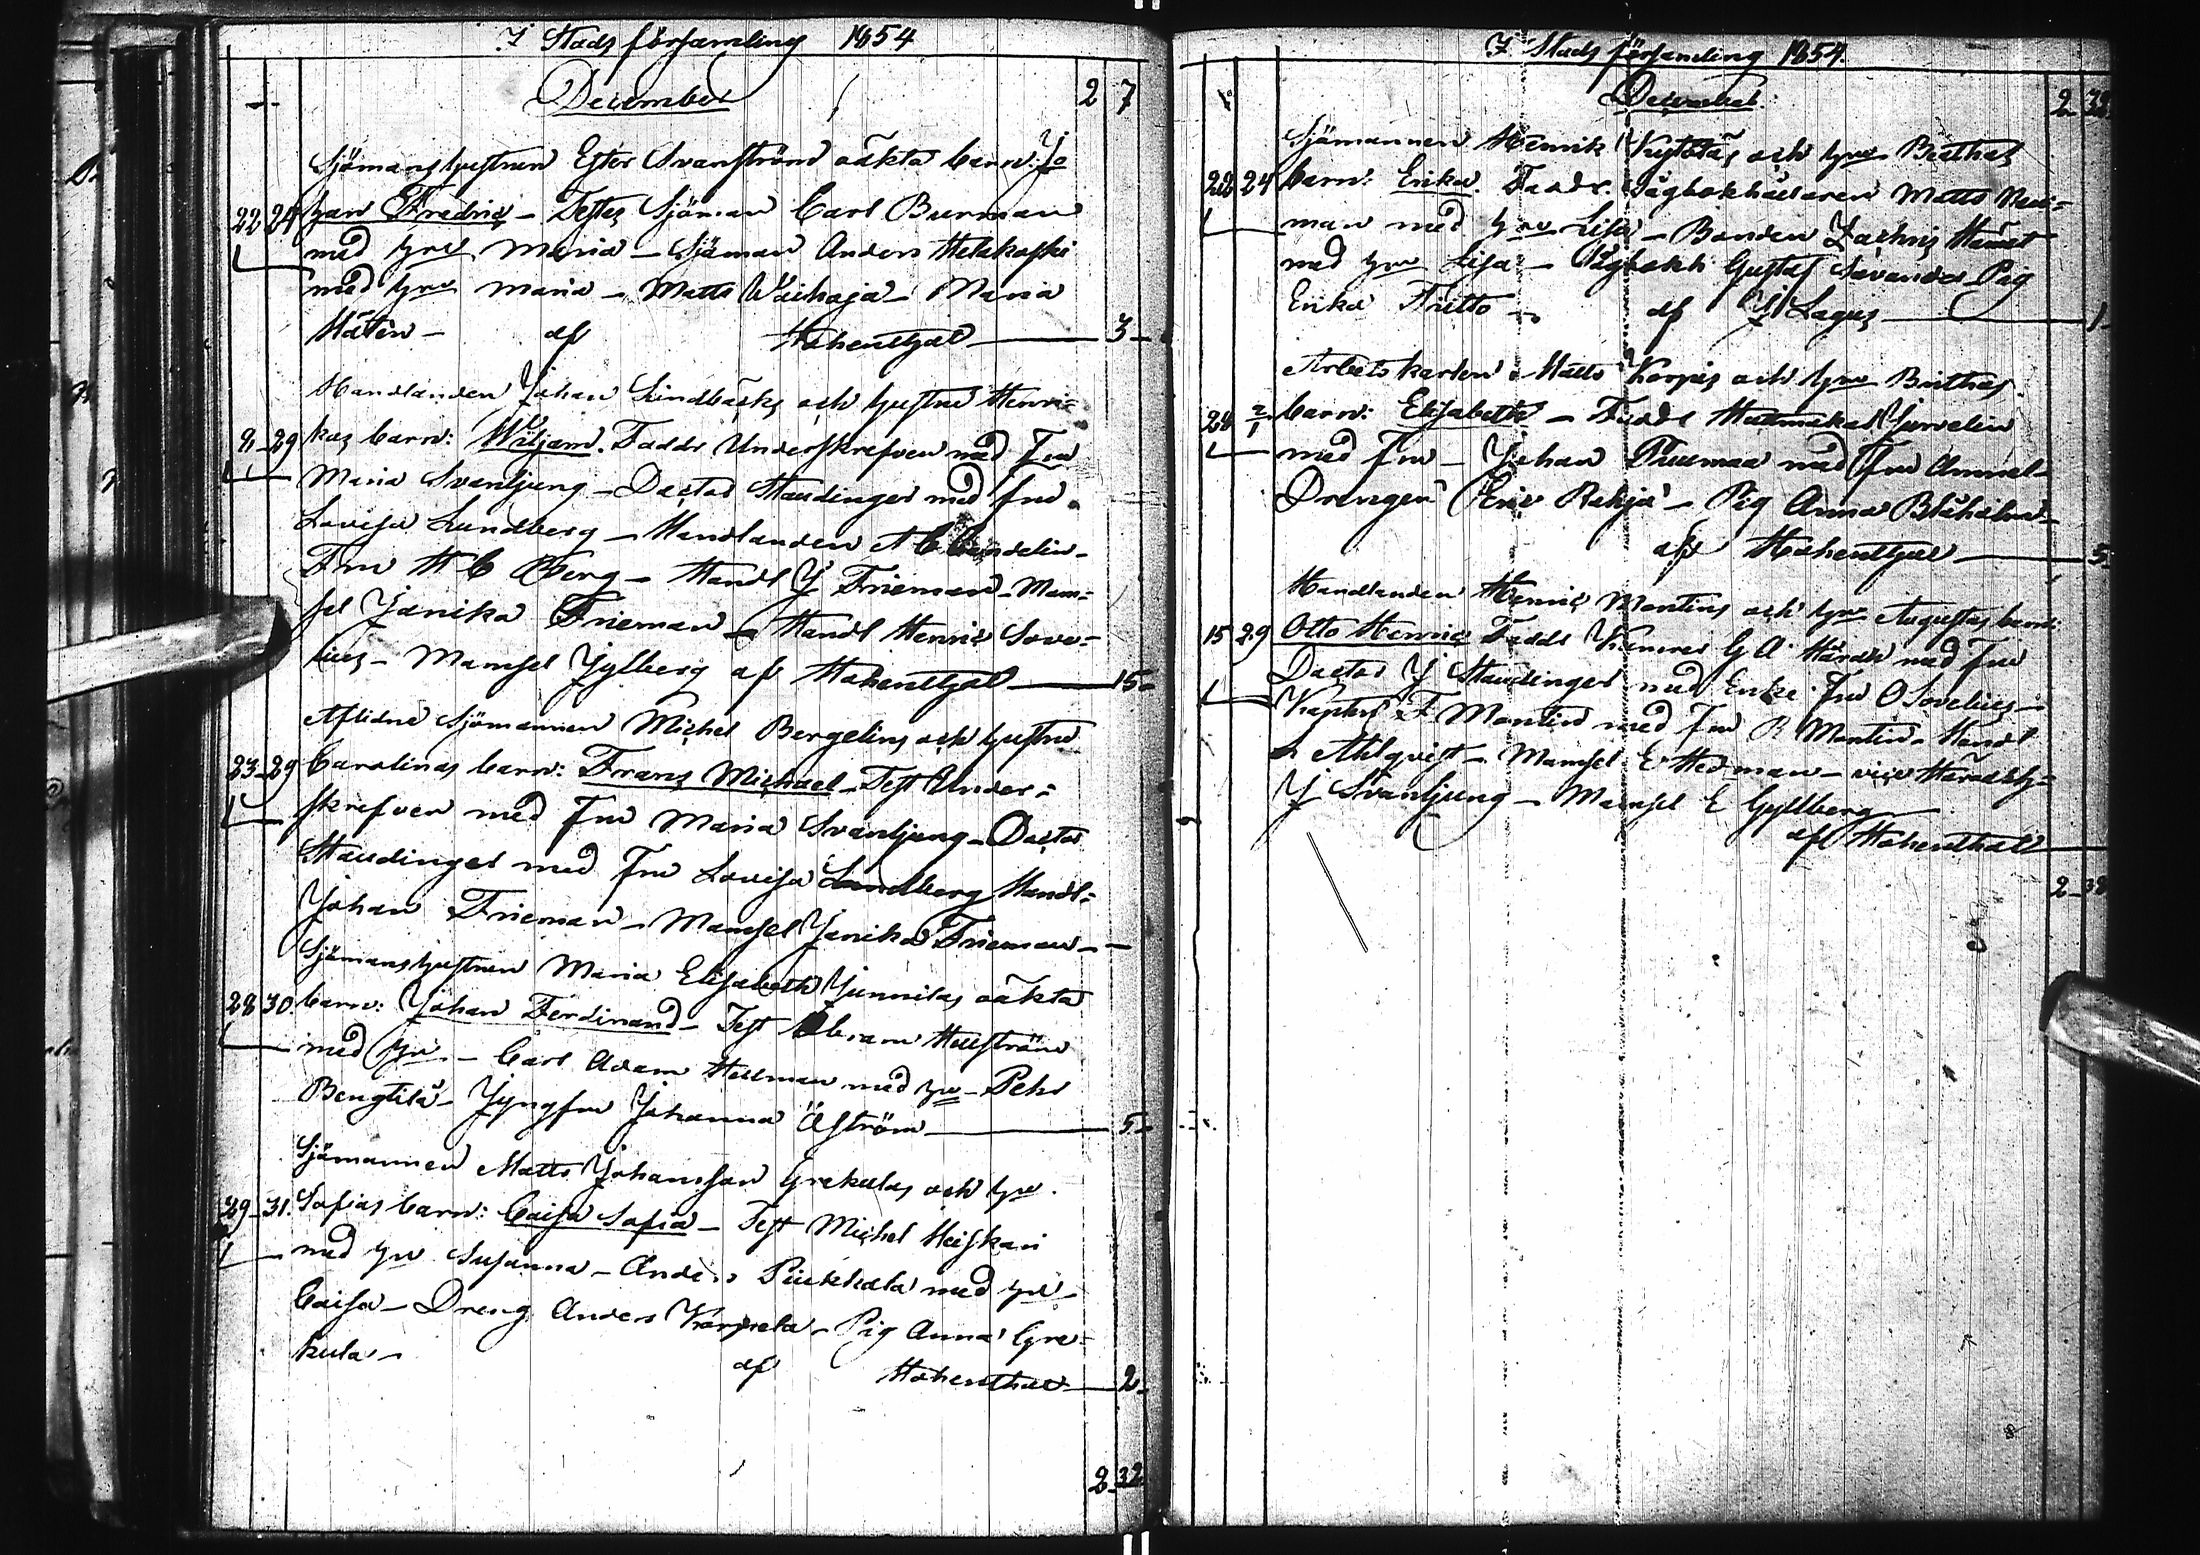 I Stads församling 1854
December 2 7
Sjömanshustrun Ester Svanströms oäkta barn: Jo
22 24 han Fredric – Testes Sjöman Carl Burman
med hru Maria – Sjöman Anders Hetakoski
med hru Maria – Matts Waihoja – Maria
Hätin – af Hohenthal 3
Handlanden Johan Lindbäcks och hustru Henri-
9 29 kas barn: Wiljam. Faddr Underskrefven med Fru
Maria Svanljung – Doctor Staudinger med fru
Lovisa Lundberg – Handlanden A C Candelin –
Fru H C Berg – Handl J Frieman – Mam-
sel Janika Frieman – Handl Henric Sove-
lius – Mamsel Gylberg af Hohenthal 15
Aflidne Sjömannen Michel Bergelins och hustru
23 29 Carolinas barn: Frans Michael – Test Under-
skrefven med Fru Maria Svanljung – Doctor
Staudinger med Fru Lovisa Lundberg Handl-
Johan Frieman – Mamsel Janika Frieman –
Sjömanshustrun Maria Elisabeth Junnilas oäkta
28 30. barn: Johan Ferdinand – Test Abram Hellström
med hru – Carl Adam Hellman med hru – Pehr
Bengtilä – Jungfru Johanna Åström 5
Sjömannen Matts Johansson Grekulas och hru
29 31. Sofias barn: Caisa Sofia – Test Michel Heiskari
med hru Susanna – Anders Piukkala med hru
Caisa – Dreng Anders Karjula – Pig Anna Gre-
kula – af Hohenthal 2
2 32
I Stads församling 1854.
December 2 32
Sjömannen Henrik och hru Brithas
22 24 barn: Erika. Faddr. Sågbokhållaren Matts
man med hru Lisa – Bonden Zachris
med hru Lisa – Sågbokh Gustaf Savander Pig
Erika Tritto – af J Lagus 1
Arbetskarlen Matts Korpis och hru Brithas
24 2/1 barn: Elisabeth – Faddr Hattmakar Jurvelin
med Fru – Johan med fru Annel
Drengen Eric Rahja – Pig Anna Blåhälmä
af Hohenthal 5
Handlanden Henric Montins och hru Augustas barn:
15 29 Otto Henric Faddr G A Hårdh med Fru
Doctor J Staudinger med Enke Fru O Sovelius –
Kapten F Montin med Fru R Montin – Handl
L Ahlqvist – Mamsel E Hedman – vice Häradsh-
J Svanljung – Mamsel E Gyllberg
af Hohenthal
2 38